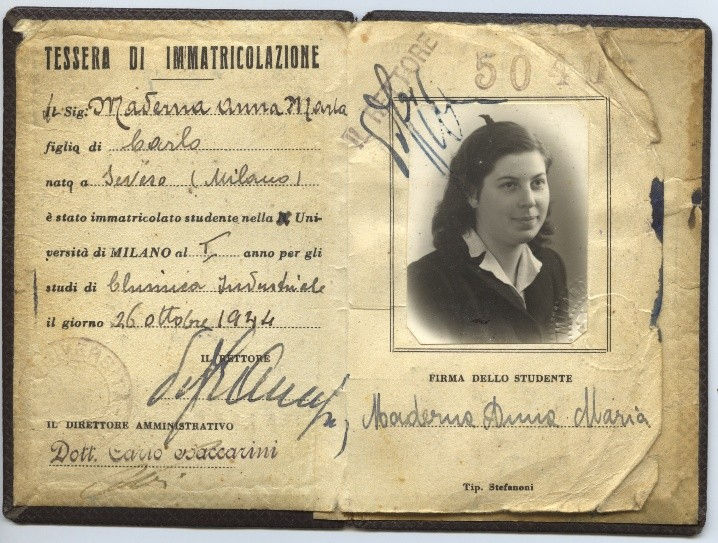 TESSERA DI IMMATRICOLAZIONE
Il Sig. Maderna Anna Maria
figlio di Carlo
nato a Seveso (Milano)
è stato immatricolato studente nella Uni-
versità di MILANO al I anno per gli
studi di Chimica Industriale
il giorno 26 ottobre 1944
IL RETTORE
IL DIRETTORE AMMINISTRATIVO
Dott. Carlo Baccarini
IL RETTORE
50
FIRMA DELLO STUDENTE
Maderna Anna Maria
Tip. Stefanoni